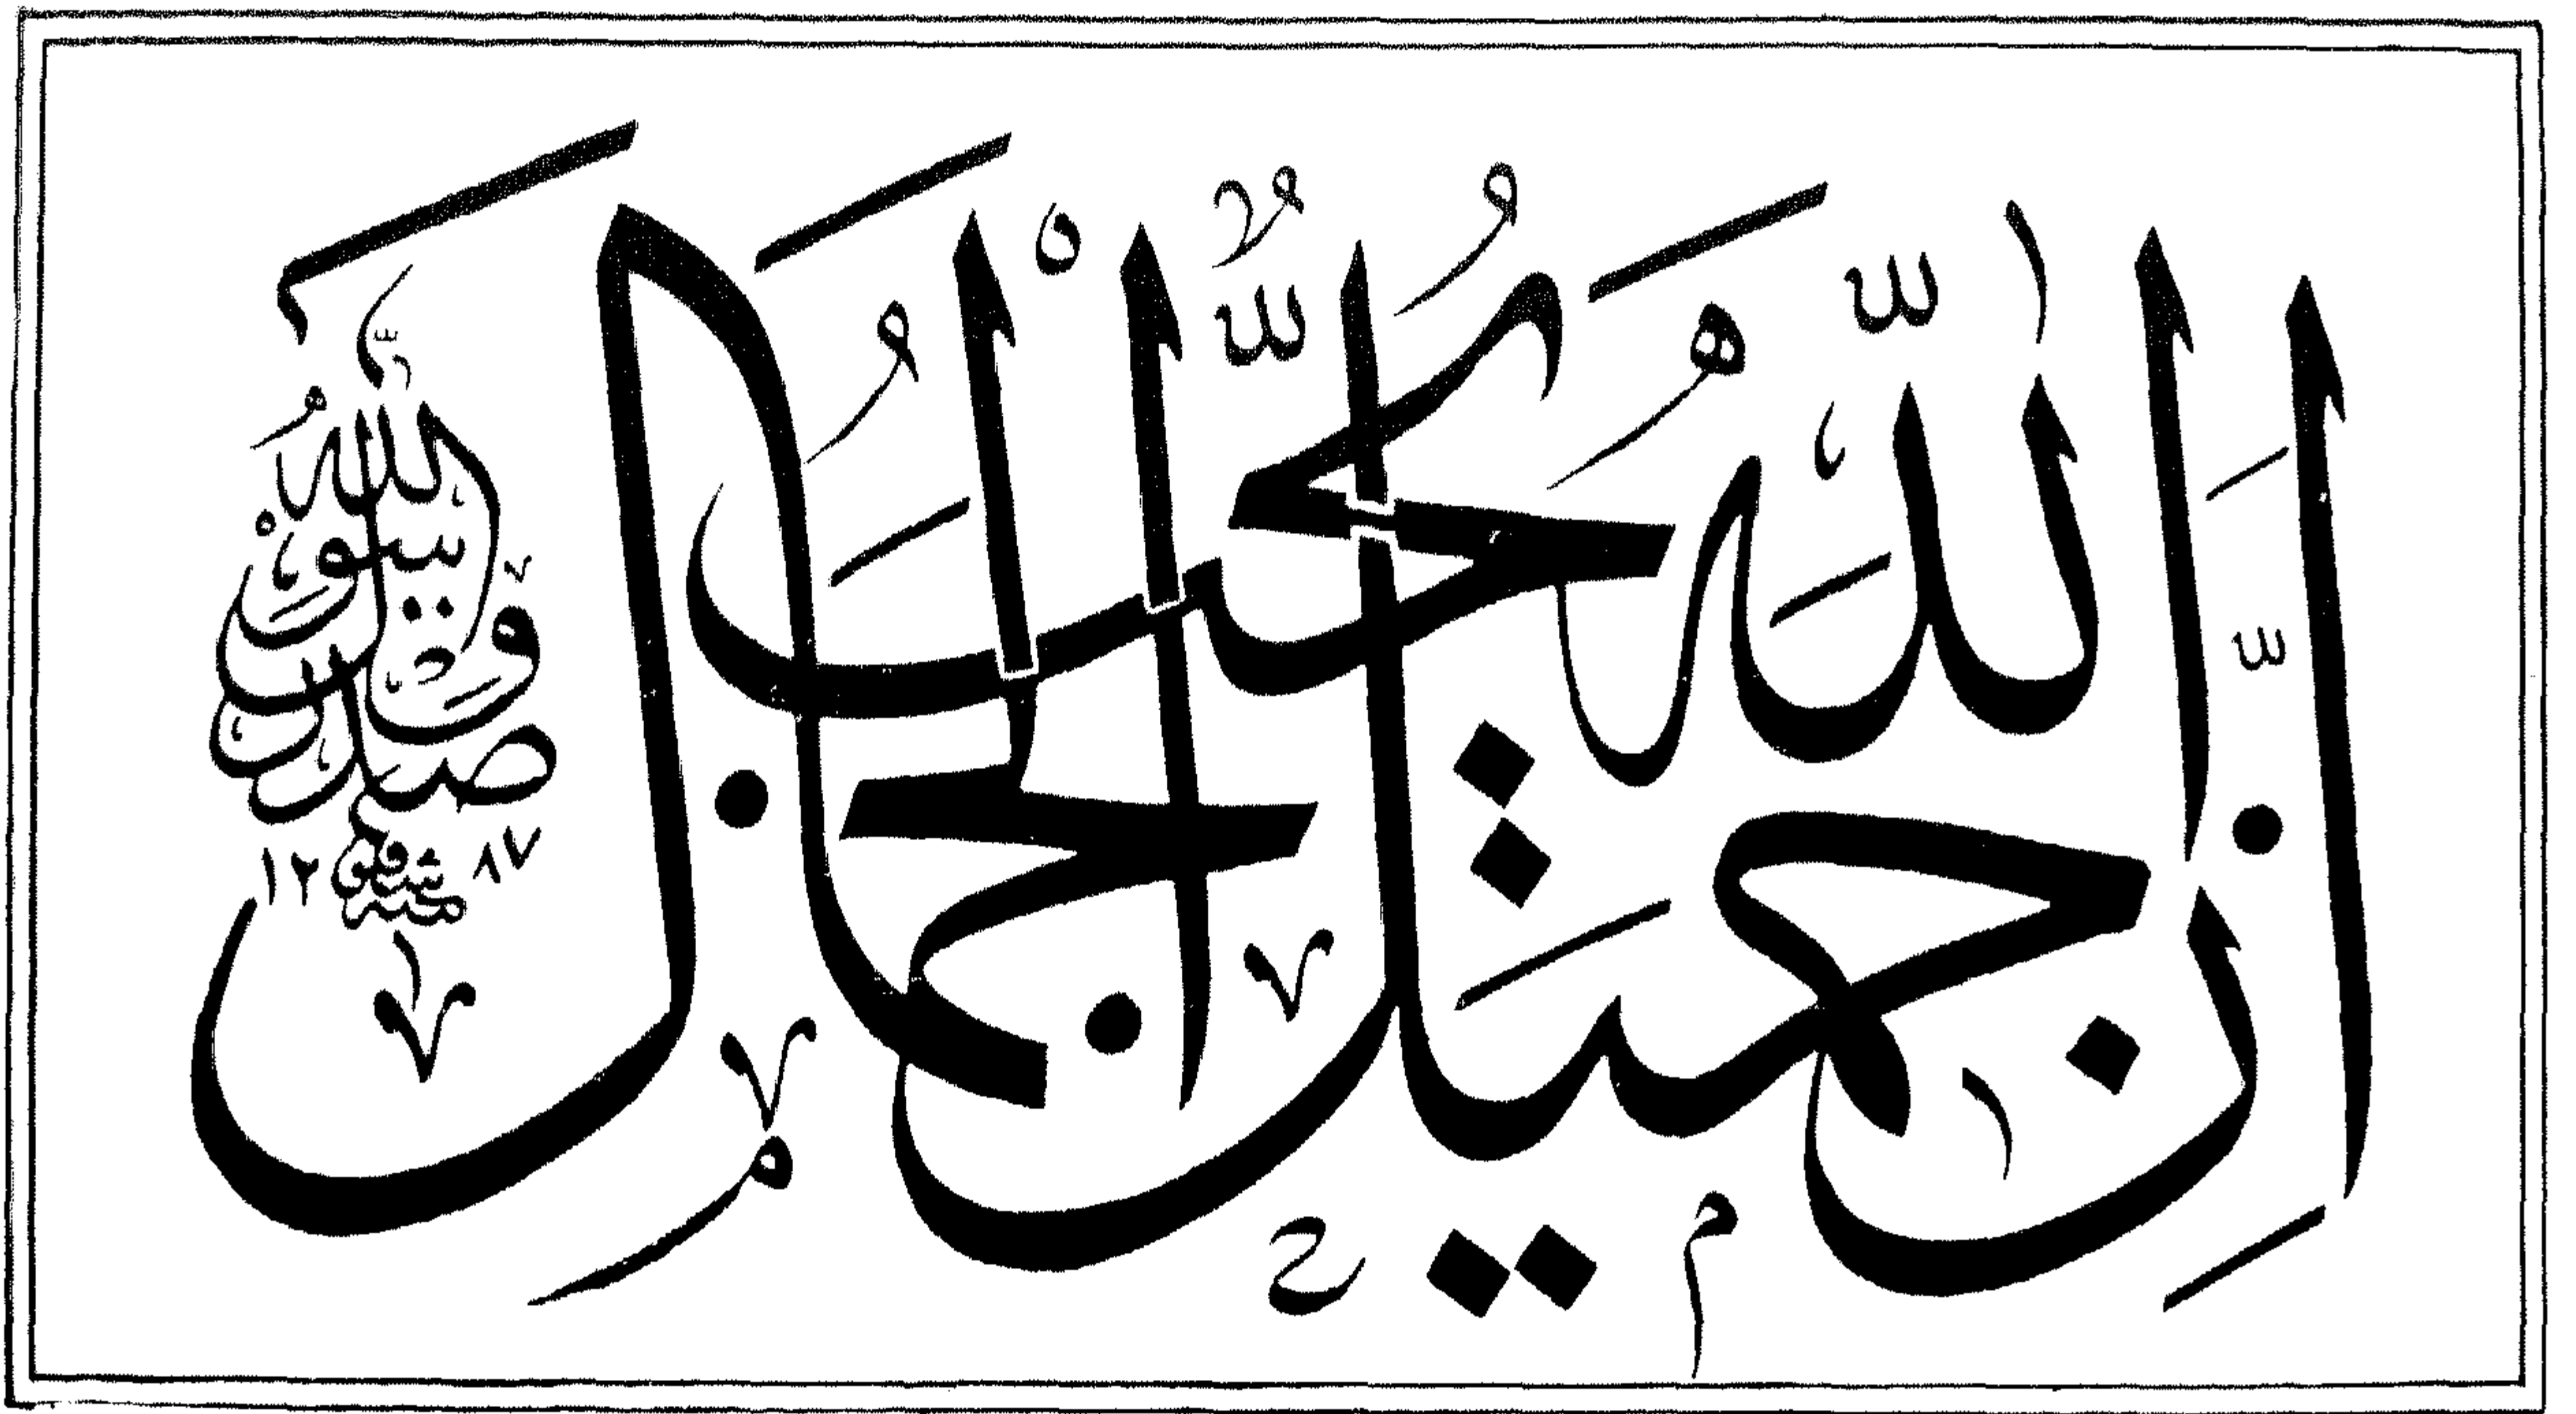 اِنَّ اللّٰهَ جَمِيلٌ يُحِبُّ الْجَمَالَ
صدق رسول الله
شفيق
١٢٨٧